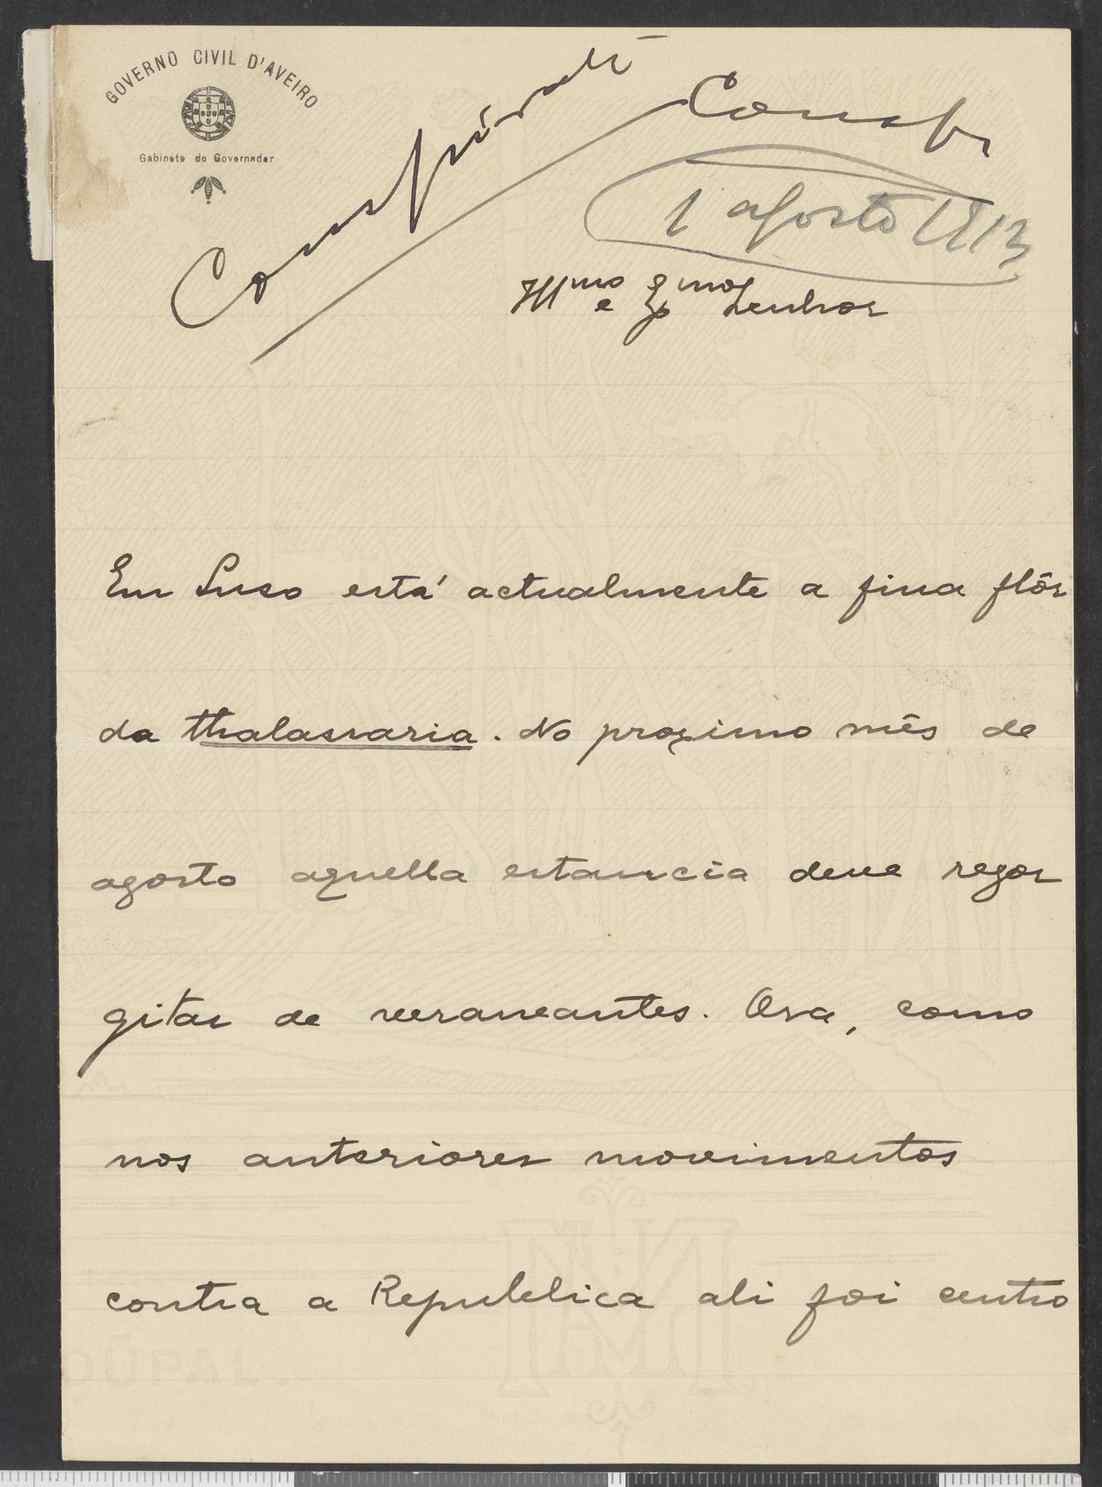 GOVERNO CIVIL D'AVEIRO
Gabinete do Governador
1 agosto 1913
Illmo e Exmo Senhor
Em Luso está actualmente a fina flôr
da thalassaria. No proximo mês de
agosto aquella estancia deve regor
gitar de veraneantes. Ora, como
nos anteriores movimentos
contra a Republica ali foi centro